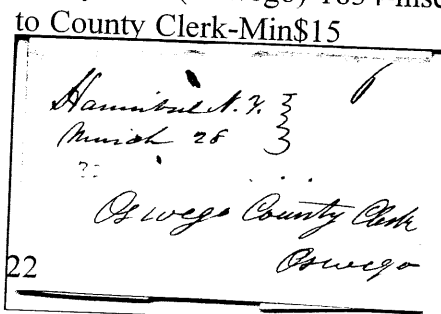 to County Clerk-Min$15
Hannibal N.Y.
March 28
Oswego County Clerk
Oswego
22